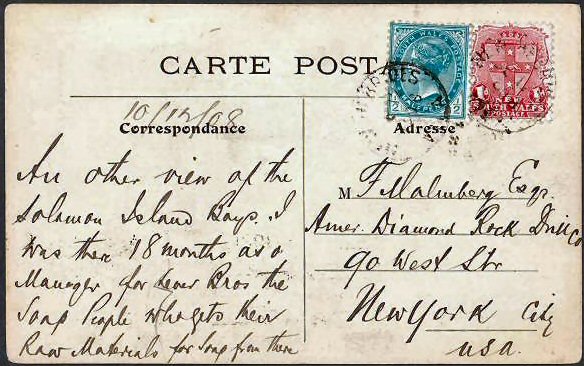 CARTE POST
10/12/08
Correspondance
Adresse
An other view of the
Solomon Island Boys. I
was there 18 months as a
Manager for Lever Bros the
Soap People who gets their
Raw Materials for Soap from there
M F Malmberg Esq.
Amer. Diamond Rock Drill Co
90 West Str
New York City
USA.
WALES POSTAGE
½ ½
NEW
SOUTH WALES
POSTAGE